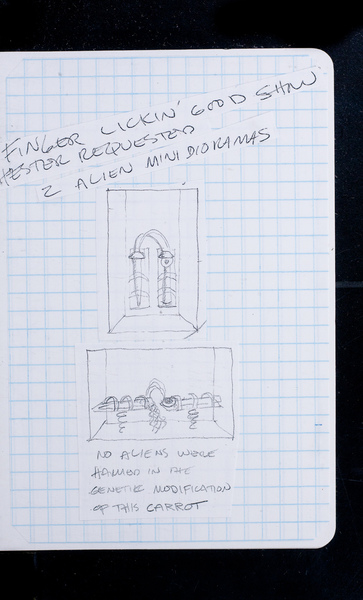 FINGER LICKIN' GOOD SHOW
HESTER REQUESTED
2 ALIEN MINI DIORAMAS
NO ALIENS WERE
HARMED IN THE
GENETIC MODIFICATION
OF THIS CARROT